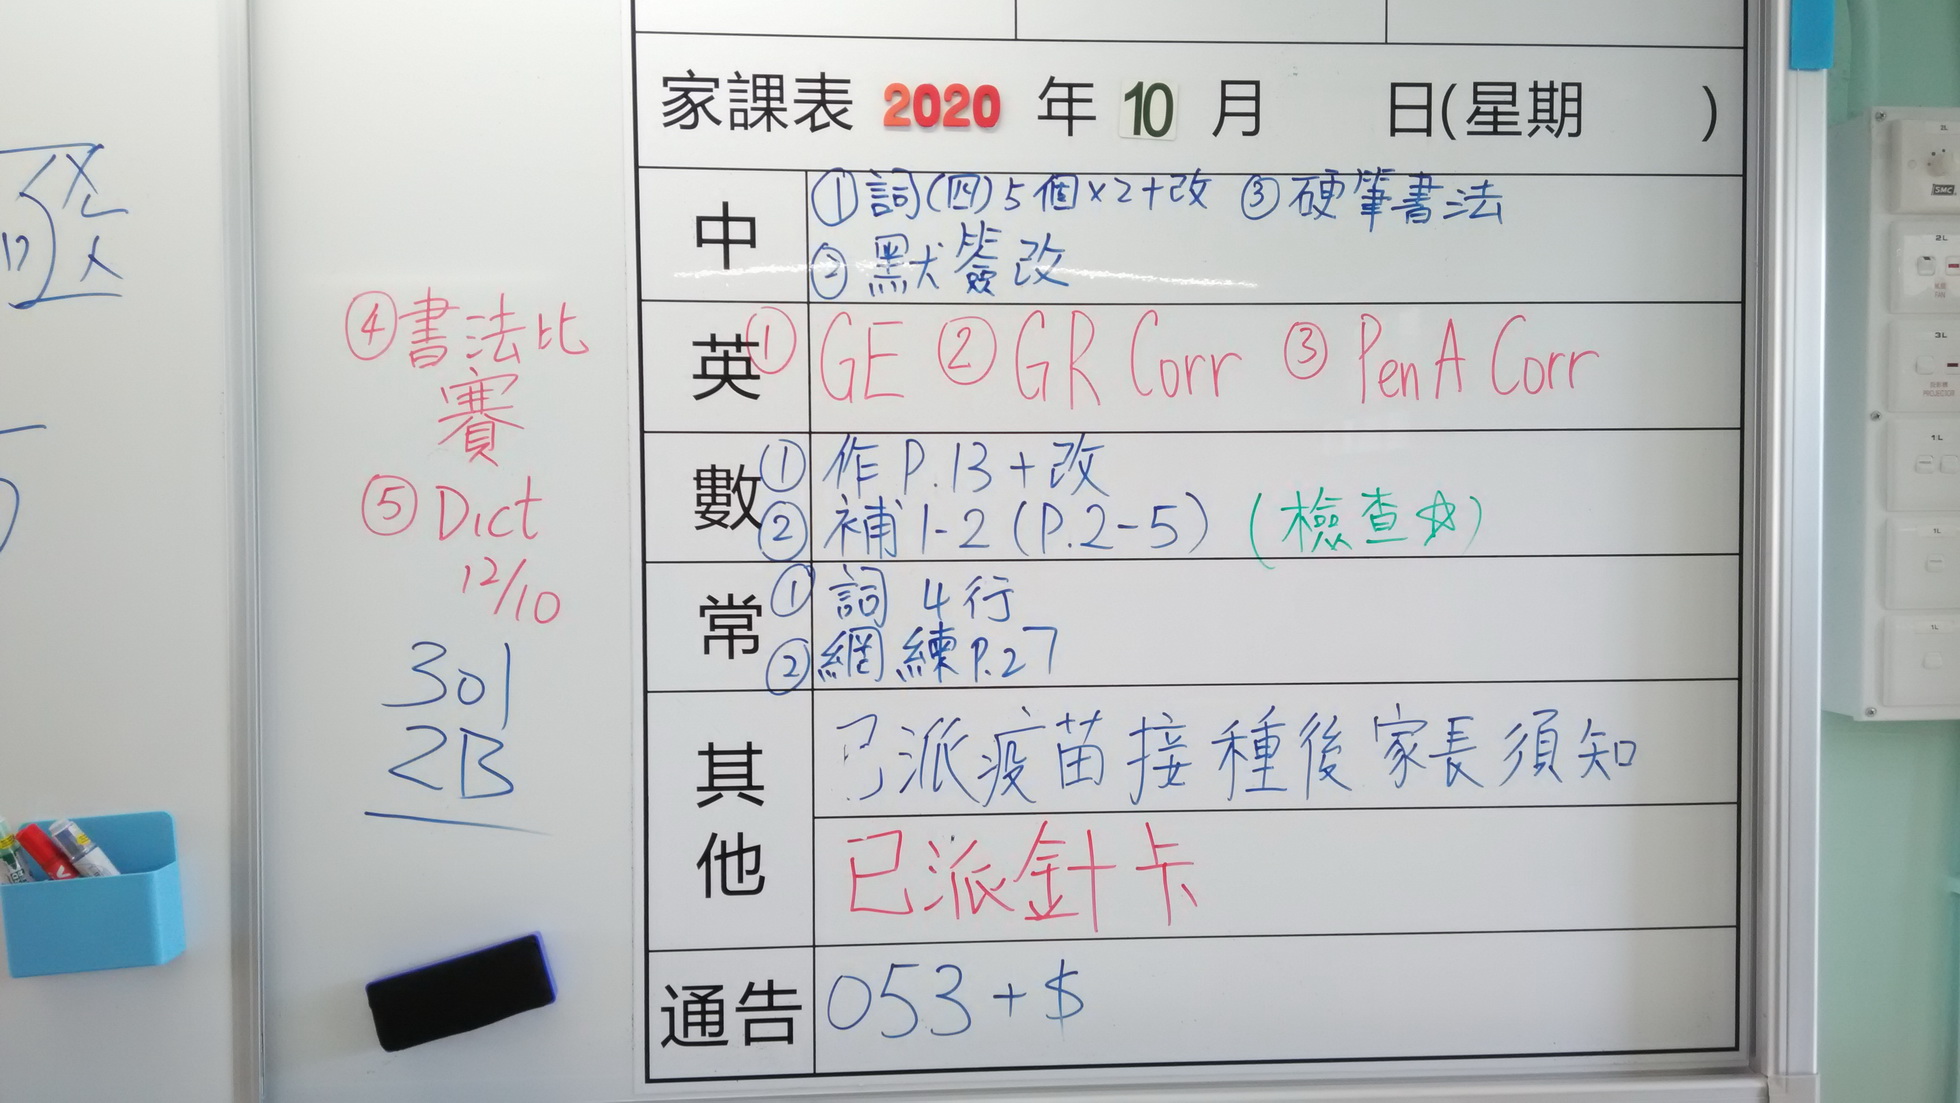 家課表 2020 年 10 月 日(星期 )
中
①詞(四)5個×2+改 ③硬筆書法
②默簽改
英
①GE ②GR Corr ③PenA Corr
④書法比
賽
⑤Dict
12/10
數
①作P.13+改
②補1-2(P.2-5)(檢查☆)
常
①詞 4行
②網練P.27
其他
已派疫苗接種後家長須知
已派針卡
通告
053+$
301
2B